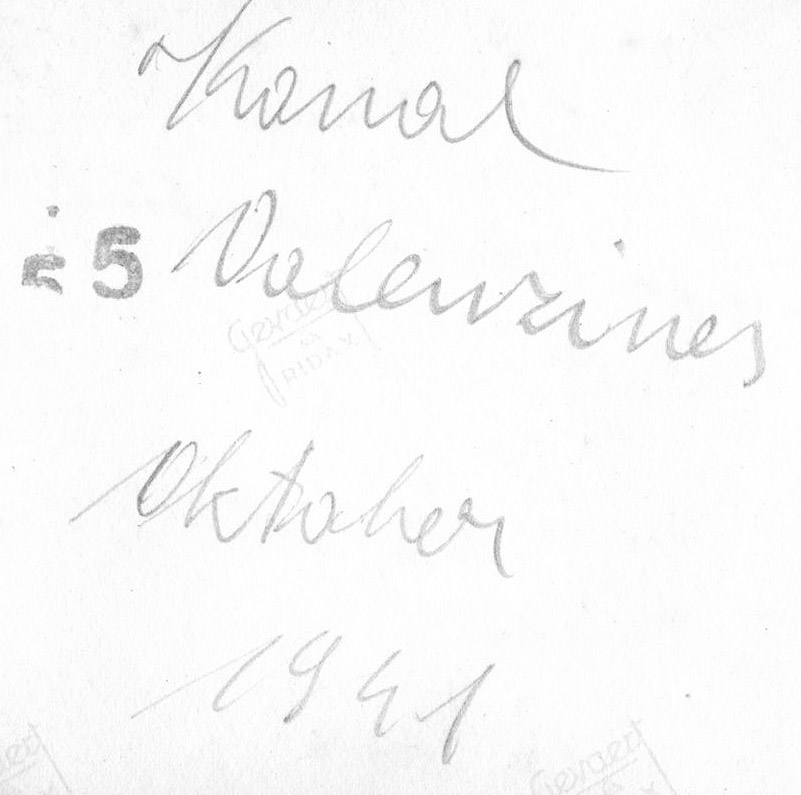 Kanal
5 Valenzines
Oktober
1941
Gevaert
RIDAX
Gevaert